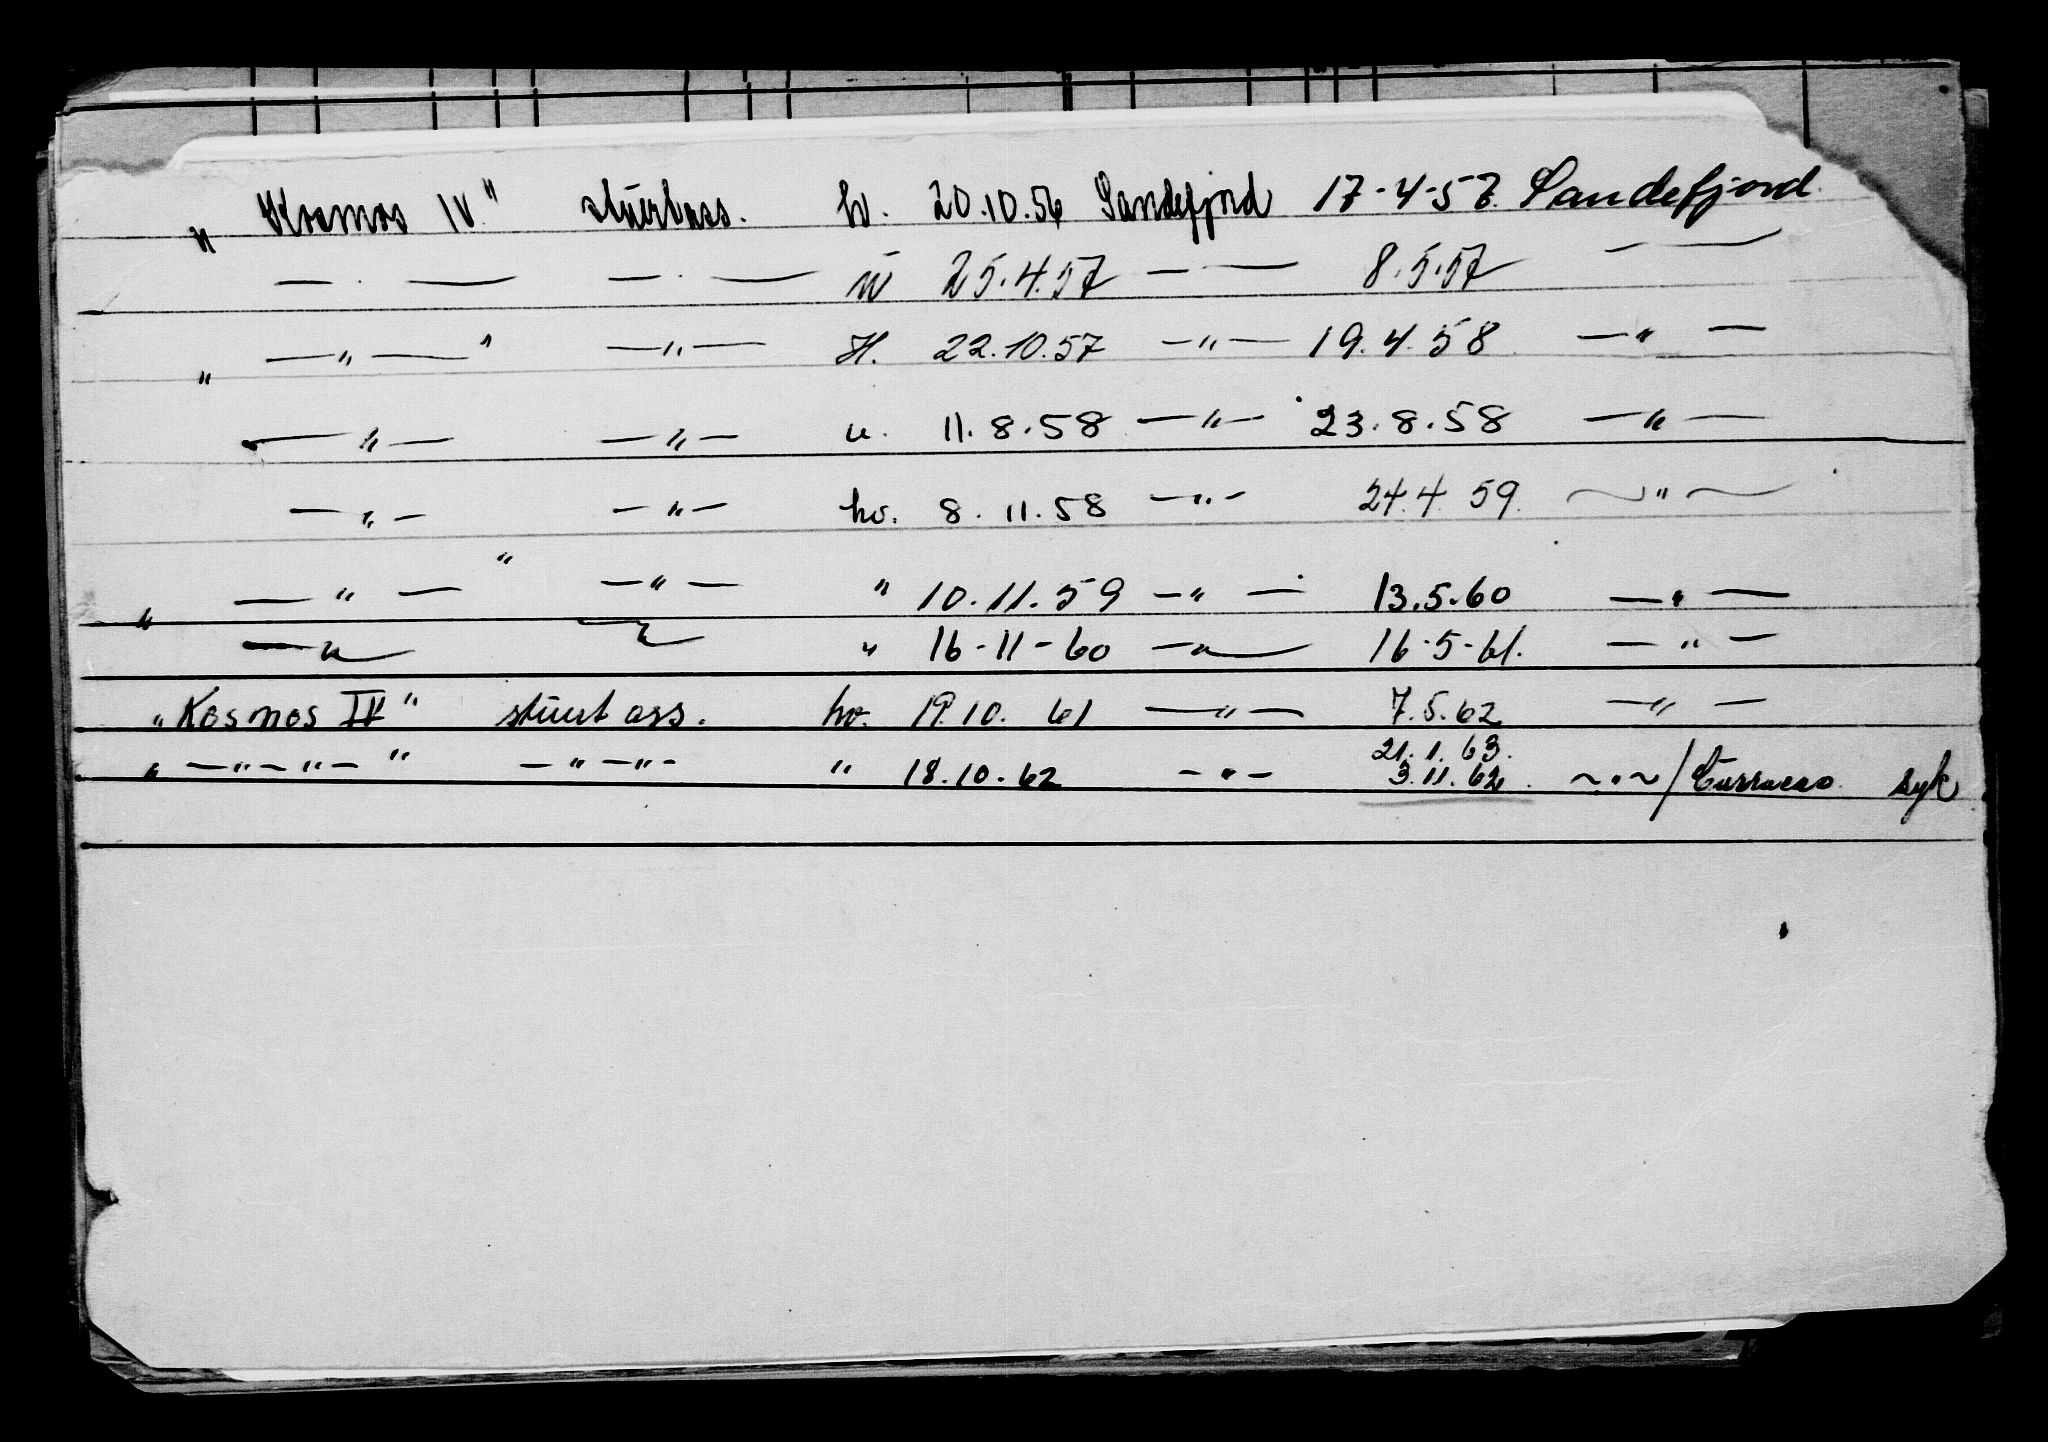 „ Kosmos IV." stuertass. hv. 20.10.56 Sandefjord 17-4-57. Sandefjord.
— . — — . — u 25.4.57 — . — 8.5.57 — —
„ — „ — " — „ — H. 22.10.57 — „ — 19.4.58 — „ —
— „ — — „ — u. 11.8.58 — „ — 23.8.58 — „ —
— „ — — „ — hv. 8.11.58 — „ — 24.4 59. ~ „ ~
„ — „ — " — „ — " 10.11.59 — „ — 13.5.60 — „ —
— „ — — „ — „ 16-11-60 — „ — 16-5-61. — „ —
„ Kosmos IV " stuert ass. hv. 19.10. 61 — „ — 7.5.62 — „ —
21.1.63.
„ — „ — „ — " — „ — „ — " 18.10.62 — „ — 3.11.62. ~ „ ~ / Curracao. syk